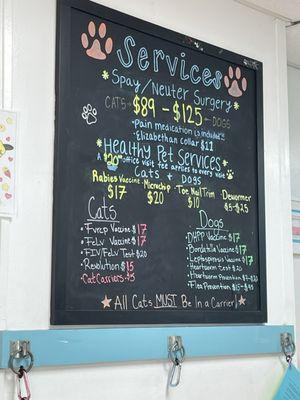 Services
Spay/Neuter Surgery
CATS $89 - $125 DOGS
• Pain medication is included!!
• Elizabethan collar $11
Healthy Pet Services
A $20 office visit fee applies to every visit
Cats & Dogs
Rabies Vaccine • Microchip • Toe Nail Trim • Dewormer
$17 $20 $10 $5-$25
Cats
• Fvrcp Vaccine $17
• FeLv Vaccine $17
• FIV/FeLv Test $20
• Revolution $15
• Cat Carriers
Dogs
• DHPP Vaccine $17
• Bordetella Vaccine $17
• Leptospirosis Vaccine $17
• Heartworm Test $20
• Heartworm Prevention
• Flea Prevention
All Cats MUST Be In a Carrier